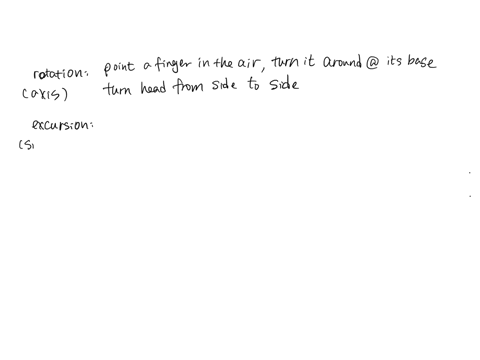 rotation: point a finger in the air, turn it around @ its base
(axis) turn head from side to side
excursion:
(si